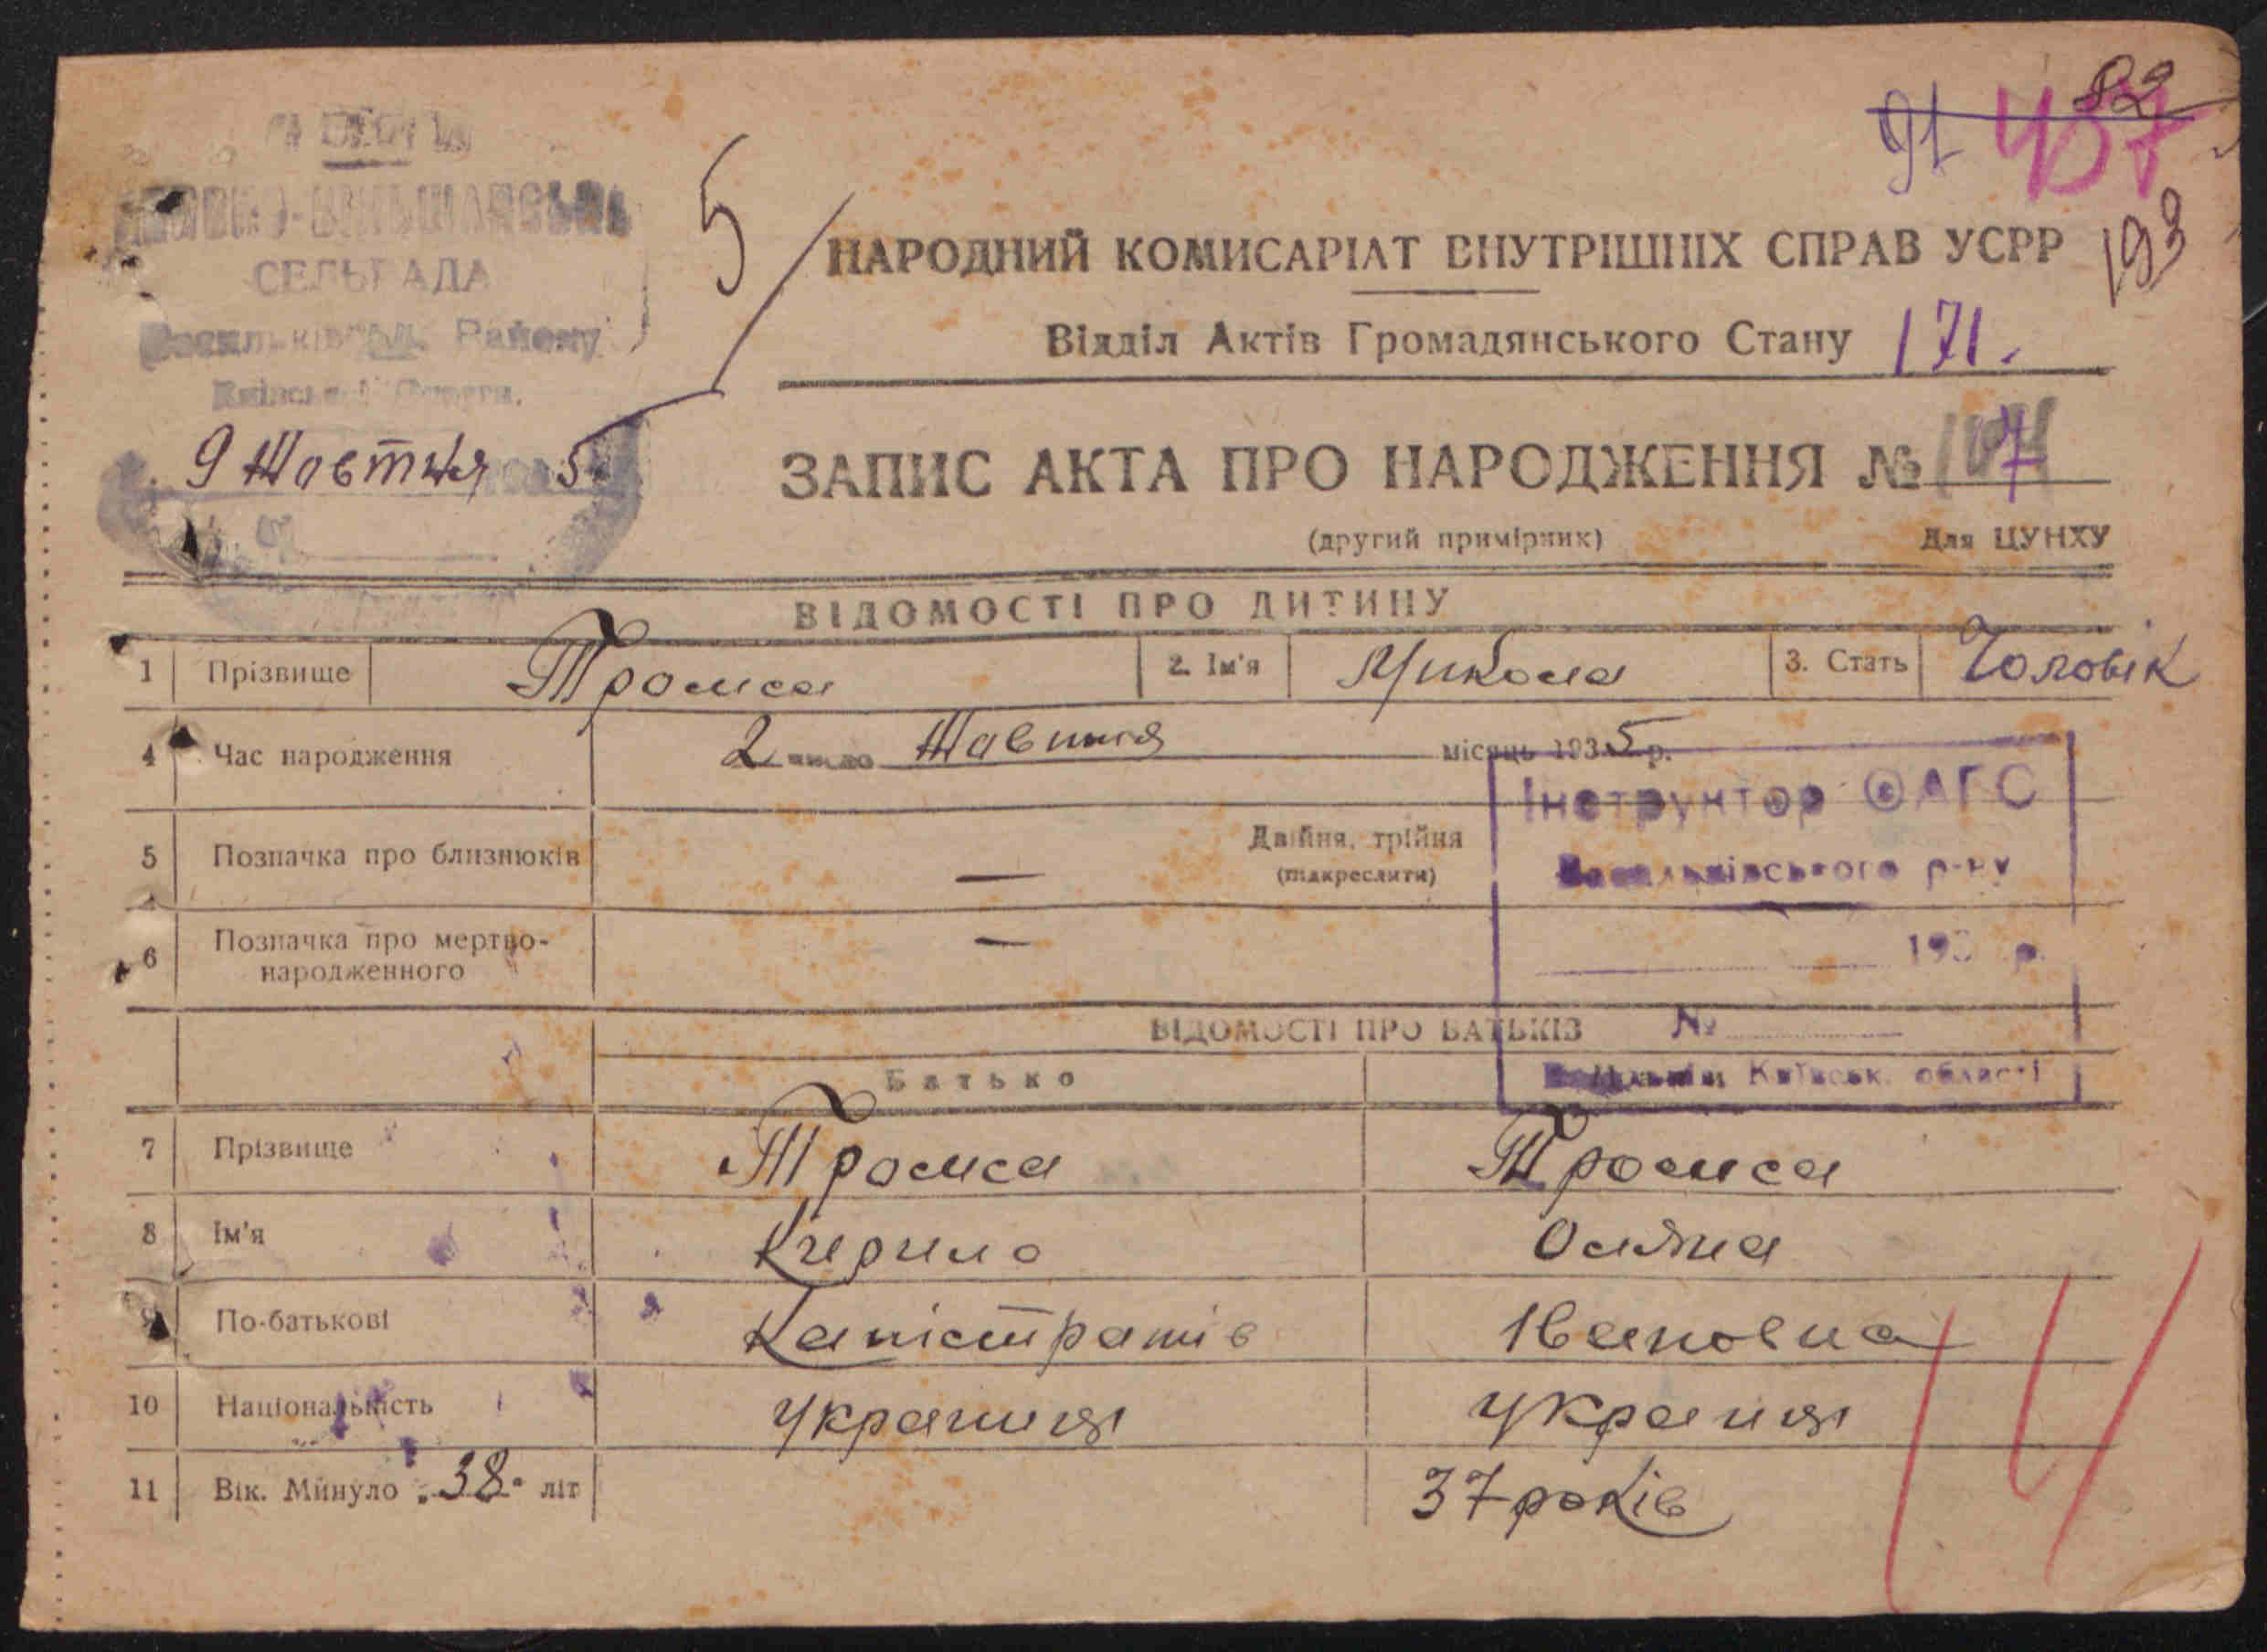 82
91 437
193
5
НАРОДНИЙ КОМИСАРІАТ ВНУТРІШНІХ СПРАВ УСРР
СЕЛЬРАДА
Району
Відділ Актів Громадянського Стану 171.
9 Жовтня 5
ЗАПИС АКТА ПРО НАРОДЖЕННЯ №
(другий примірник) Для ЦУНХУ
ВІДОМОСТІ ПРО ДИТИНУ
1 Прізвище Тромса 2. Ім'я Микола 3. Стать Чоловік
4 Час народження 2 число Жовтня місяць 1935 р.
Інструктор ОАГС
5 Позначка про близнюків — Двійня, трійня
(підкреслити)
Васильківського р-ну
6 Позначка про мертво-
народженного —
193 р.
ВІДОМОСТІ ПРО БАТЬКІВ №
Батько
Київськ. області
7 Прізвище Тромса Тромса
8 Ім'я Кирило Оляна
9 По-батькові Каністратів Івановна
10 Національність Украинця Украинця
11 Вік. Минуло 38 літ 37 років